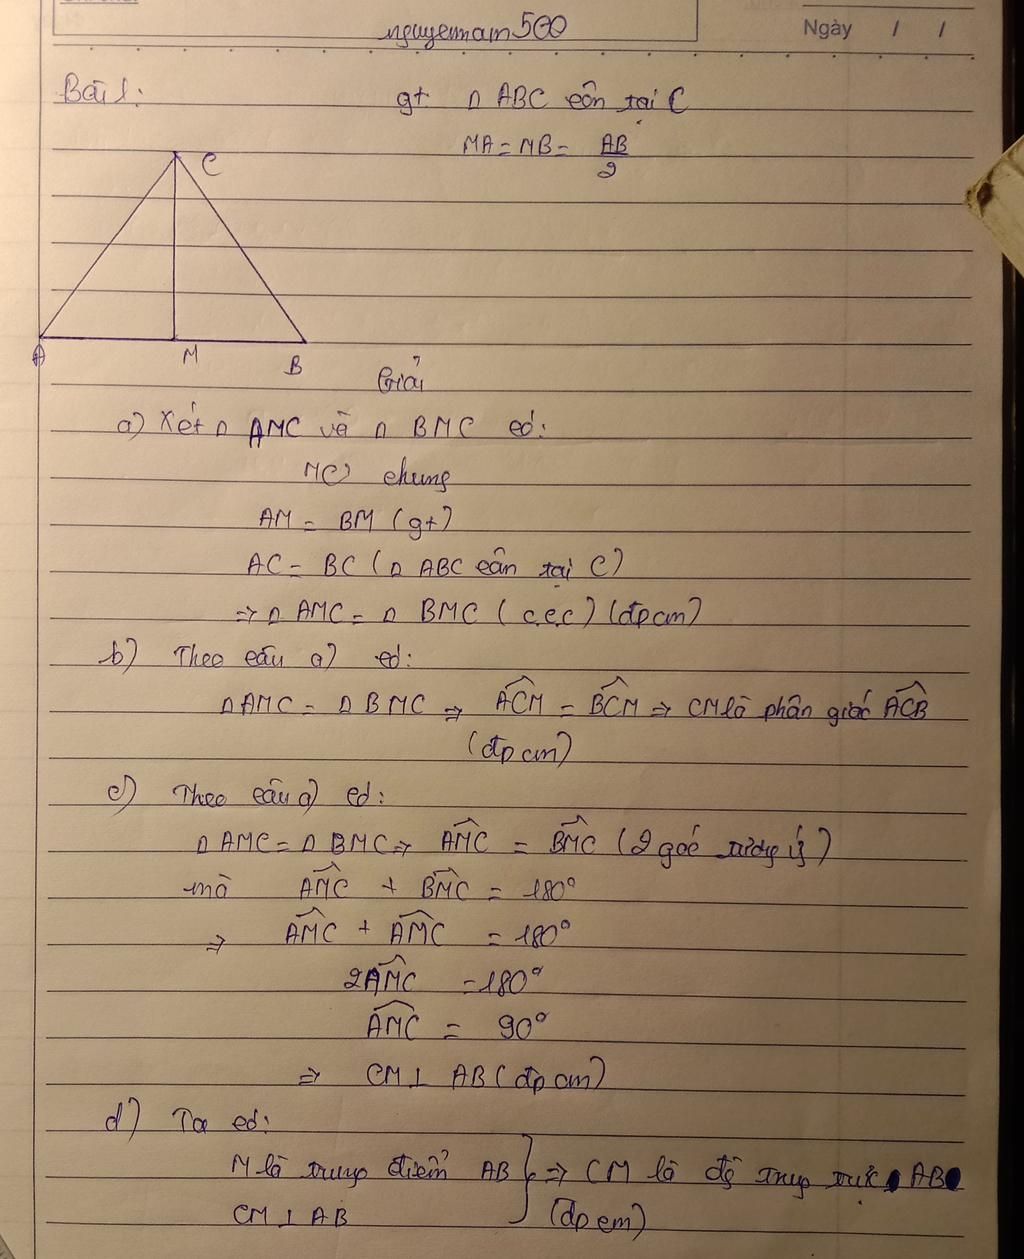 nguyennam500
Ngày / /
Bài 1:
gt Δ ABC cân tại C
MA = MB = AB/2
C
A M B
Giải
a) Xét Δ AMC và Δ BMC có:
MC chung
AM = BM (gt)
AC = BC (Δ ABC cân tại C)
⇒ Δ AMC = Δ BMC (c.c.c) (đpcm)
b) Theo câu a) có:
Δ AMC = Δ BMC ⇒ \widehat{ACM} = \widehat{BCM} ⇒ CM là phân giác \widehat{ACB}
(đpcm)
c) Theo câu a) có:
Δ AMC = Δ BMC ⇒ \widehat{AMC} = \widehat{BMC} (2 góc tương ứ)
mà \widehat{AMC} + \widehat{BMC} = 180°
⇒ \widehat{AMC} + \widehat{AMC} = 180°
2\widehat{AMC} = 180°
\widehat{AMC} = 90°
⇒ CM ⊥ AB (đpcm)
d) Ta có:
M là trung điểm AB } ⇒ CM là đg trung trực AB
CM ⊥ AB (đpcm)